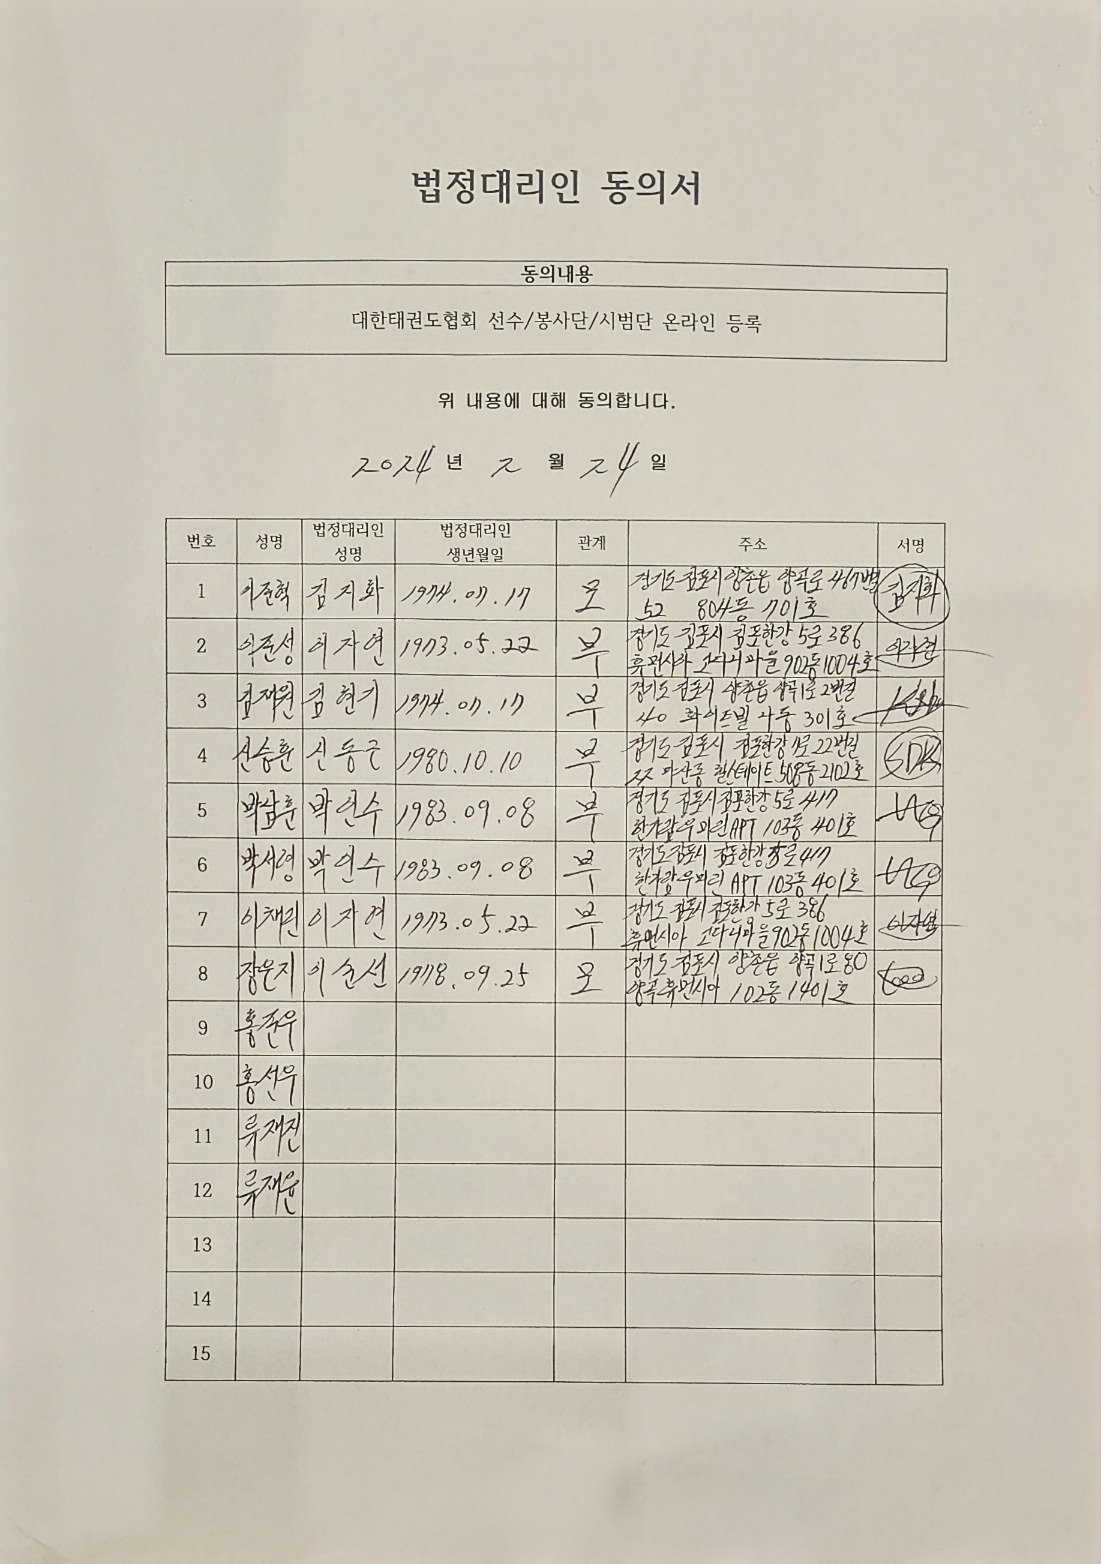 법정대리인 동의서
동의내용
대한태권도협회 선수/봉사단/시범단 온라인 등록
위 내용에 대해 동의합니다.
2024 년 2 월 24 일
번호 성명 법정대리인 성명 법정대리인 생년월일 관계 주소 서명
1 이준혁 김지화 1974.07.17 모 경기도 김포시 양촌읍 양곡로 467번길 김지화
52 804동 701호
2 이준성 이자연 1973.05.22 부 경기도 김포시 김포한강5로 386 이자연
휴먼시아 고다니마을 902동 1004호
3 김재원 김현기 1974.07.17 부 경기도 김포시 양촌읍 양곡1로 2번길
40 화이트빌 가동 301호
4 신승훈 신동근 1980.10.10 부 경기도 김포시 김포한강1로 22번길 SDK
마산동 힐스테이트 508동 2102호
5 박연수 1983.09.08 부 경기도 김포시 김포한강5로 417
한가람우미린APT 103동 401호
6 박서영 박연수 1983.09.08 부 경기도 김포시 김포한강5로 417
한가람우미린APT 103동 401호
7 이채린 이자연 1973.05.22 부 경기도 김포시 김포한강5로 386 이자연
휴먼시아 고다니마을 902동 1004호
8 장은지 이순선 1978.09.25 모 경기도 김포시 양촌읍 양곡1로 80
양곡휴먼시아 102동 1401호
9 홍준우
10 홍선우
11 류재진
12 류재윤
13
14
15